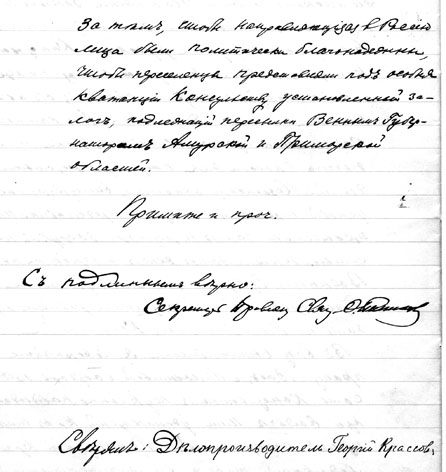 за тѣмъ, чтобы направляющіяся в Россію
лица были политически благонадежны,
чтобы переселенцы представляли подъ особыя
квитанціи Консульству установленной за-
логъ, подлежащій пересылкѣ Военнымъ Губер-
наторамъ Амурской и Приморской
областей.
Примите и проч.
Съ подлиннымъ вѣрно:
Секретарь
Свѣрялъ: Дѣлопроизводитель Георгій Крассов